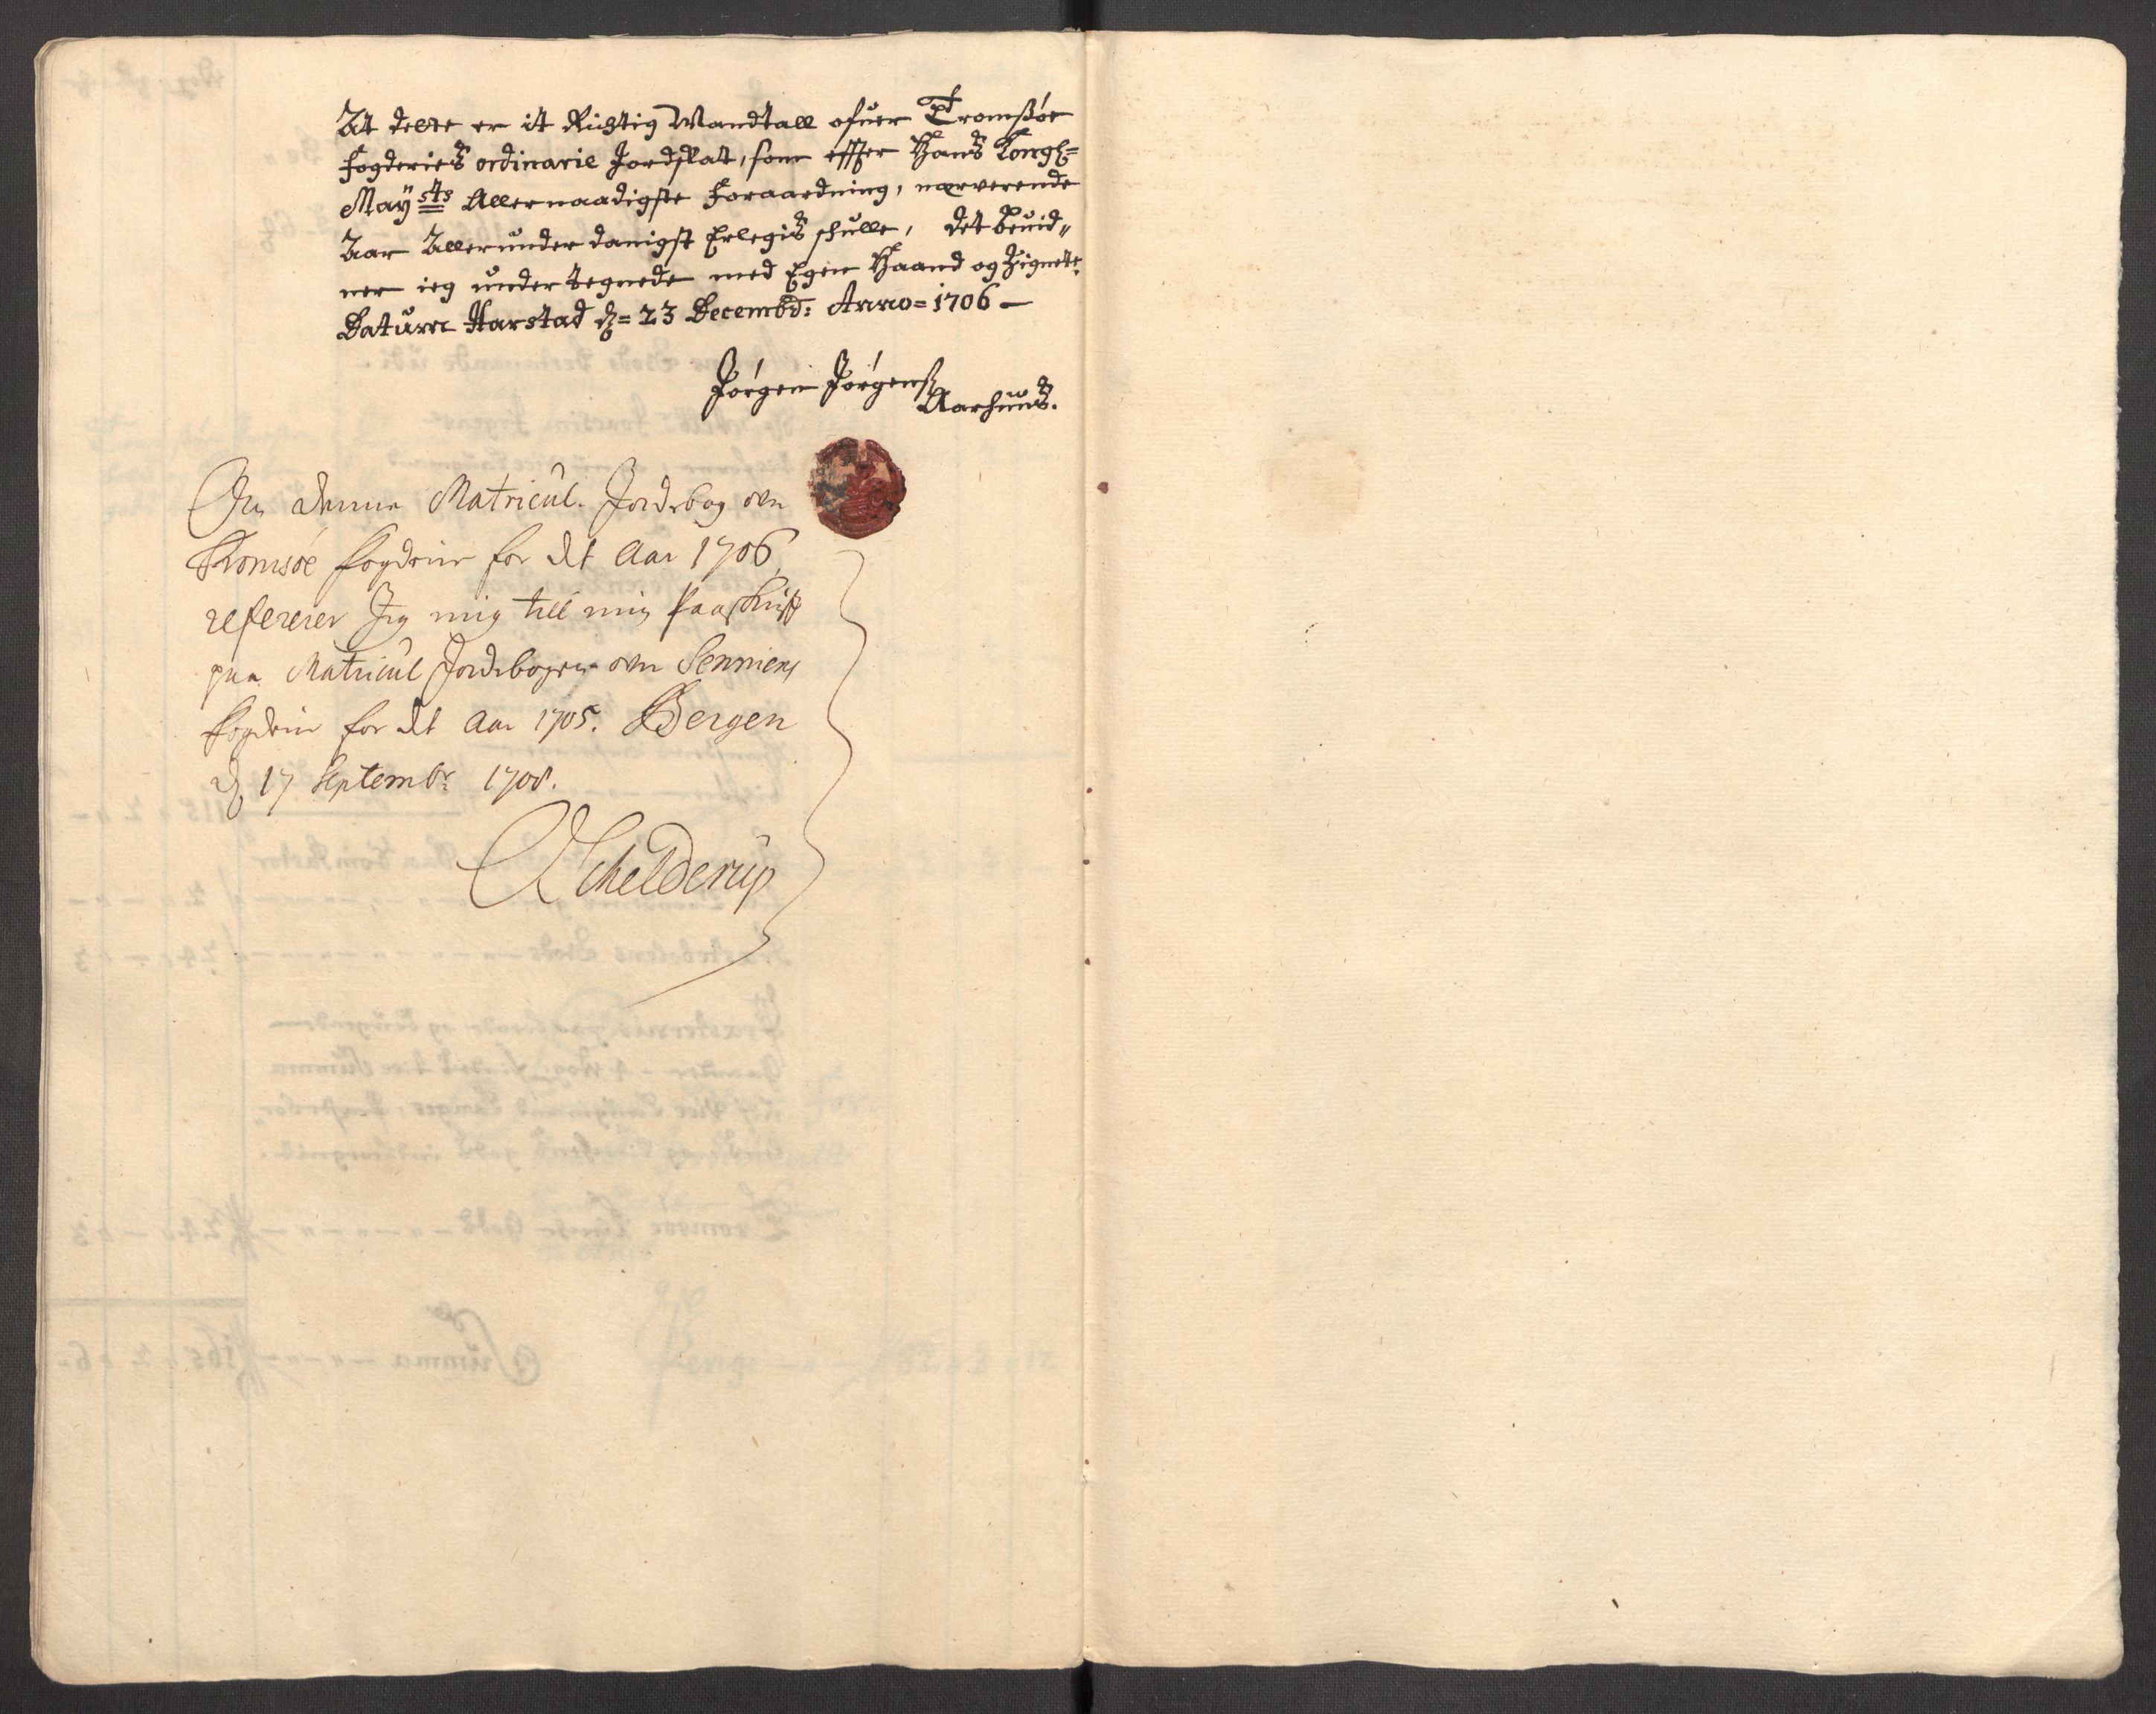 At dette er it Rigtig Mandtall ofuer Tromsøe
Fogderies ordinarie Jordskat, som effter Hans Kongl=
Maysts Allernaadigste Foraardning, nærverende
Aar Allerunder danigst Erlegis schulle, det beuid„
ner ieg under tegnede med Egen Haand og Zignete.
Datum Harstad d= 23 Decembr: Anno= 1706 —
Jørgen Jørgenß
Aarhuus.
Om denne Matricul Jordebog over
Tromsøe fogderie for det Aar 1706
refererer Jeg mig till min Paaskrift
paa Matricul Jordebogen over Senniens
fogderie for det Aar 1705. Bergen
d 17 Septembr 1708.
Schelderup